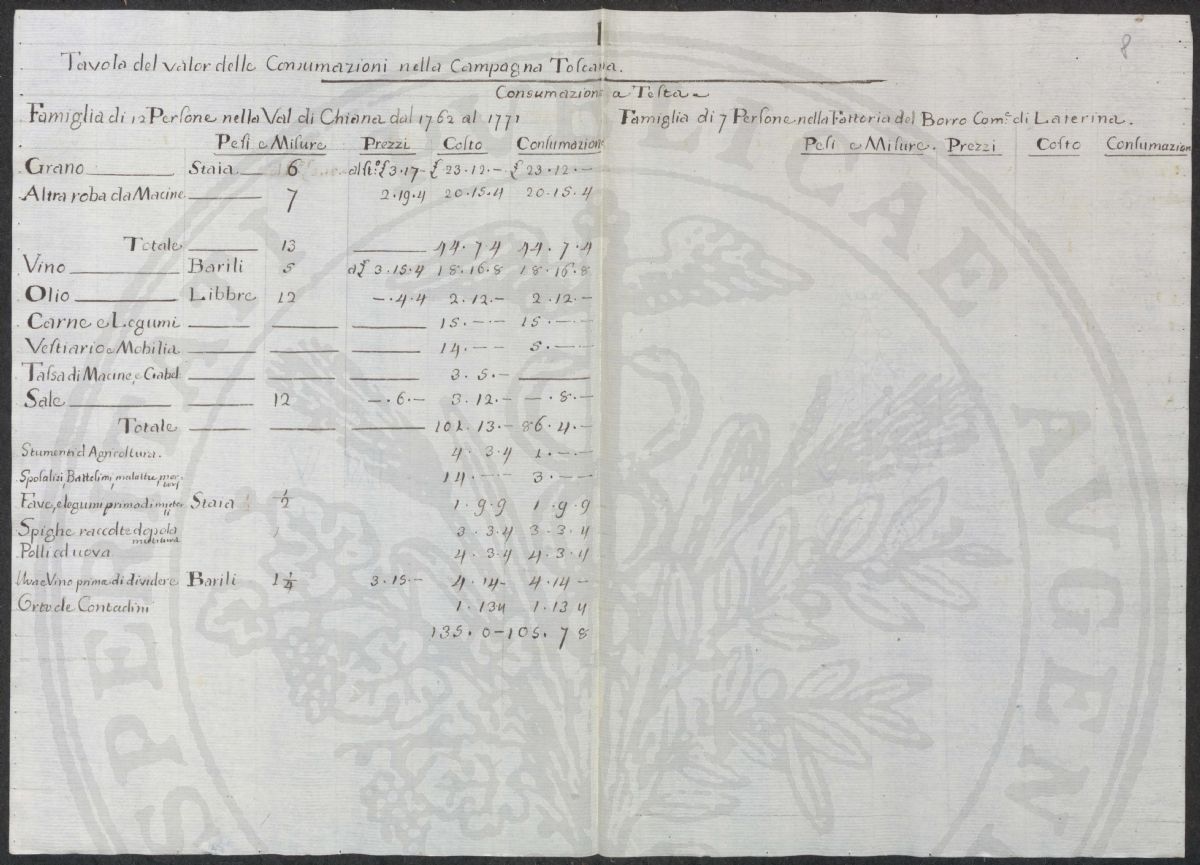 8
Tavola del valor delle Consumazioni nella Campagna Toscana.
Consumazione a Testa
Famiglia di 12 Persone nella Val di Chiana dal 1762 al 1771
Famiglia di 7 Persone nella Fattoria del Borro Com.e di Laterina.
Pesi e Misure Prezzi Costo Consumazione
Pesi e Misure. Prezzi Costo Consumazion
Grano Staia 6 al st.o £ 3.17- £ 23.12.- £ 23.12.-
Altra roba da Macine 7 2.19.4 20.15.4 20.15.4
Totale 13 44.7.4 44.7.4
Vino Barili 5 a £ 3.15.4 18.16.8 18.16.8
Olio Libbre 12 -.4.4 2.12.- 2.12.-
Carne e Legumi 15.-.- 15.-.-
Vestiario e Mobilia 14.-- 5.--
Tassa di Macine, e Gabel. 3.5.-
Sale 12 -.6.- 3.12.- -.8.-
Totale 102.13.- 86.4.-
Stumenti d Agricoltura. 4.3.4 1.--
Sposalizi, Battesimi, malattie, mortori 14.-- 3.--
Fave, e legumi prima di mieterli Staia 1/2 1.9.9 1.9.9
Spighe raccolte dopo la mietitura 3.3.4 3.3.4
Polli ed uova 4.3.4 4.3.4
Uva e Vino prima di dividere Barili 1 1/4 3.15.- 4.14- 4.14-
Orto de Contadini 1.134 1.134
135.0- 105.78
SPERITATI PUBLICAE AUGEN